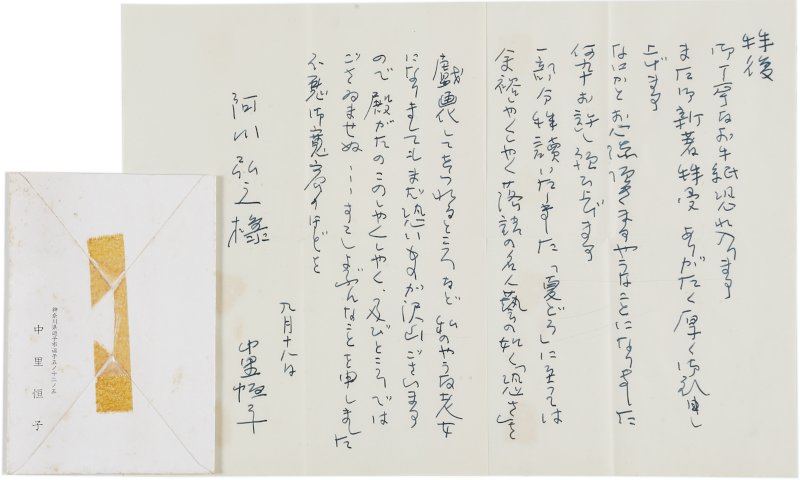 拝復
御丁寧なお手紙恐れ入ります
また御新著拝受 ありがたく厚く御礼申し
上げます
なにかとお心づかひ頂きますやうなことになりました
何卒お許し願上げます
一部分拝読いたしました 「夏どろ」に至っては
余裕しゃくしゃく落語の名人藝の如く恐さを
戯画化してをられるところなど 私のやうな老女
になりましてもまだ恐いものが沢山ございます
ので 殿がたのこのしゃくしゃく、及びところでは
ございませぬ すこしよぶんなことを申しました
不悪御寛容のほどを
九月十八日
中里恒子
阿川弘之様
神奈川県逗子市逗子五ノ十二ノ五
中里恒子